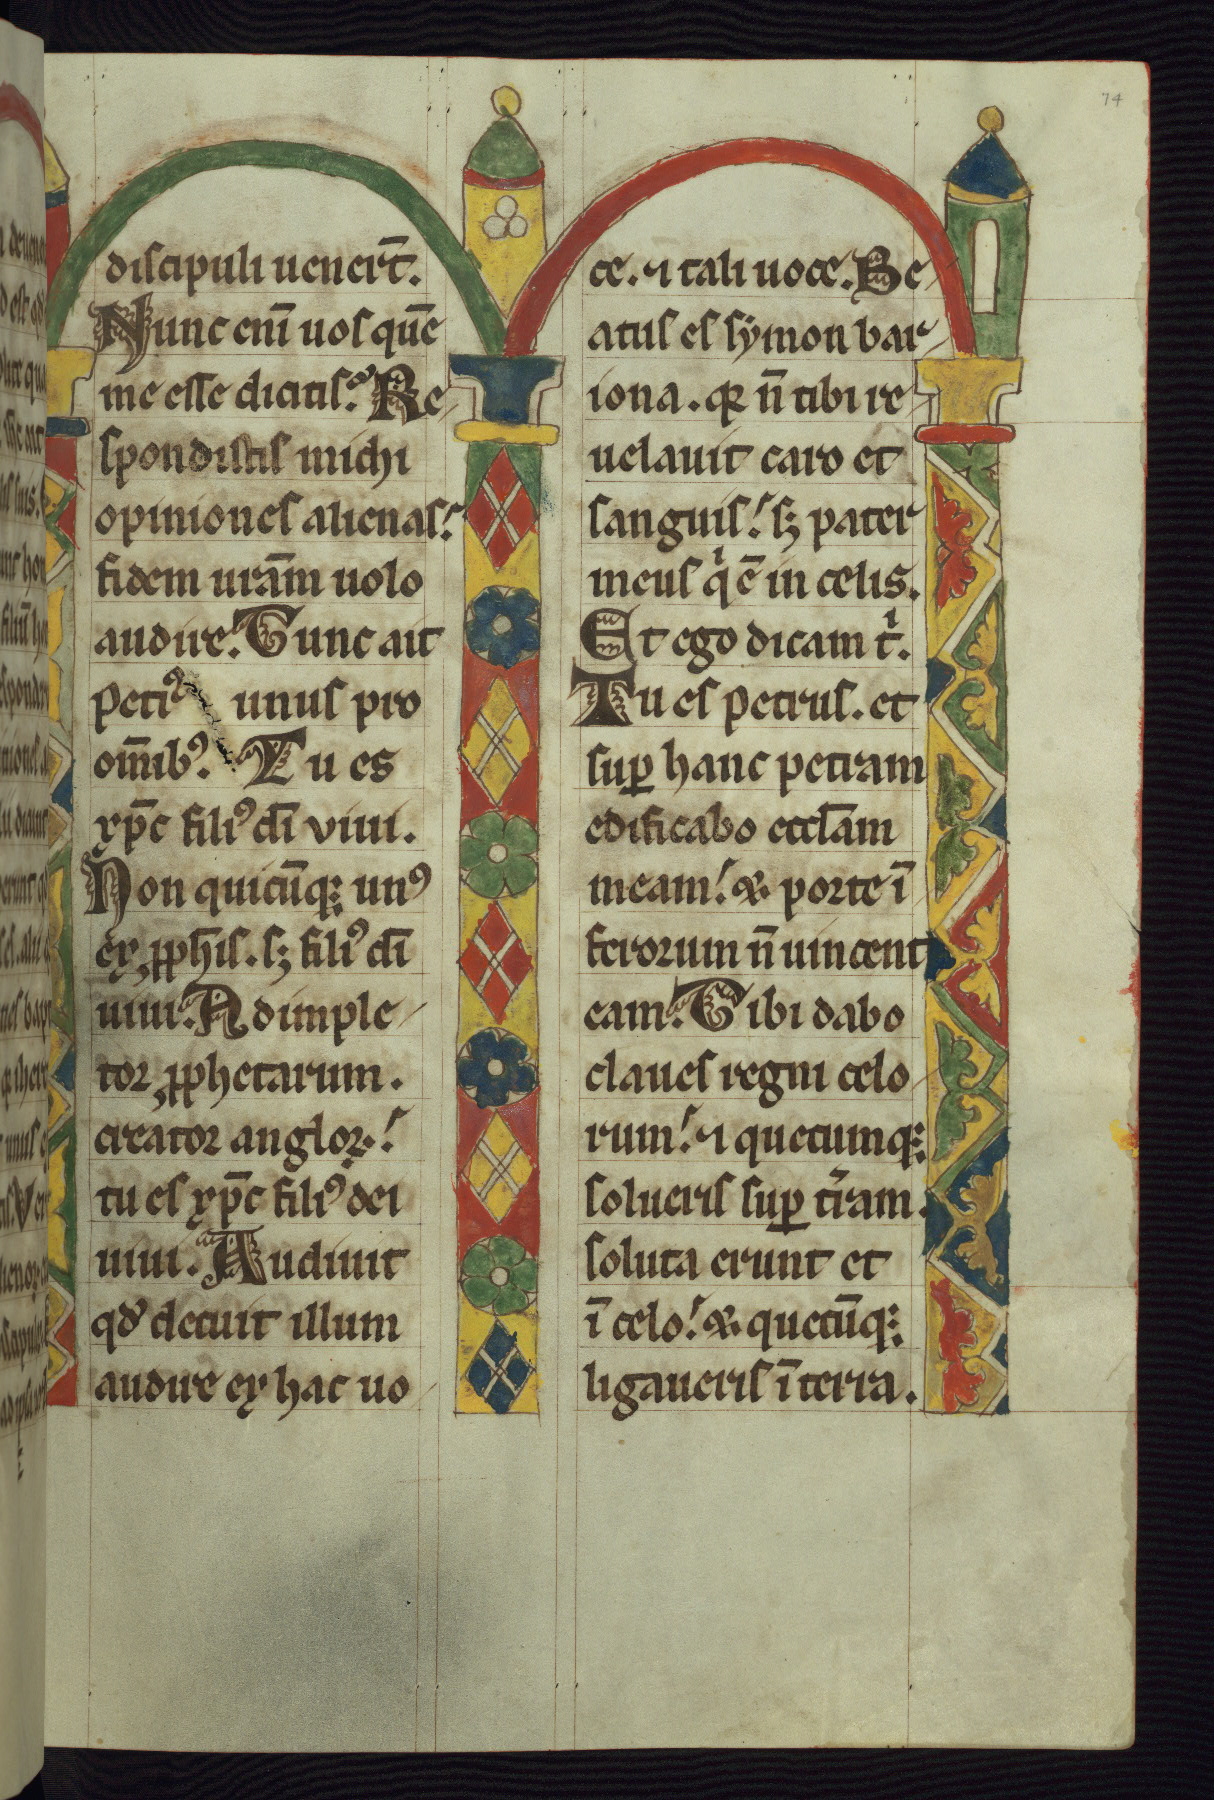 74
discipuli uenert̄.
Nunc enī uos quē
me esse dicitis. Re
spondistis michi
opiniones alienas.
fidem urām uolo
audire. Tunc ait
petrꝰ unus pro
om̄ibꝰ. Tu es
xp̄c filiꝰ dī viui.
Non quicūq; unꝰ
ex ꝓph̄is. sꝫ filiꝰ dī
uiui. Adimple
tor ꝓphetarum.
creator angloꝝ.
tu es xp̄c filiꝰ dei
uiui. Audiuit
qđ decuit illum
audire ex hac uo
ce. ⁊ tali uoce. Be
atus es sẏmon bar
iona. qꝛ n̄ tibi re
uelauit caro et
sanguis. sꝫ pater
meus qͥ ē in celis.
Et ego dicam tͥ.
Tu es petrus. et
suꝑ hanc petram
edificabo eccl̄am
meam. ⁊ porte ī
ferorum n̄ uincent
eam. Tibi dabo
claues regni celo
rum. ⁊ quecumq;
solueris suꝑ t̄ram.
soluta erunt et
ī celo. ⁊ quecūq;
ligaueris ī terra.